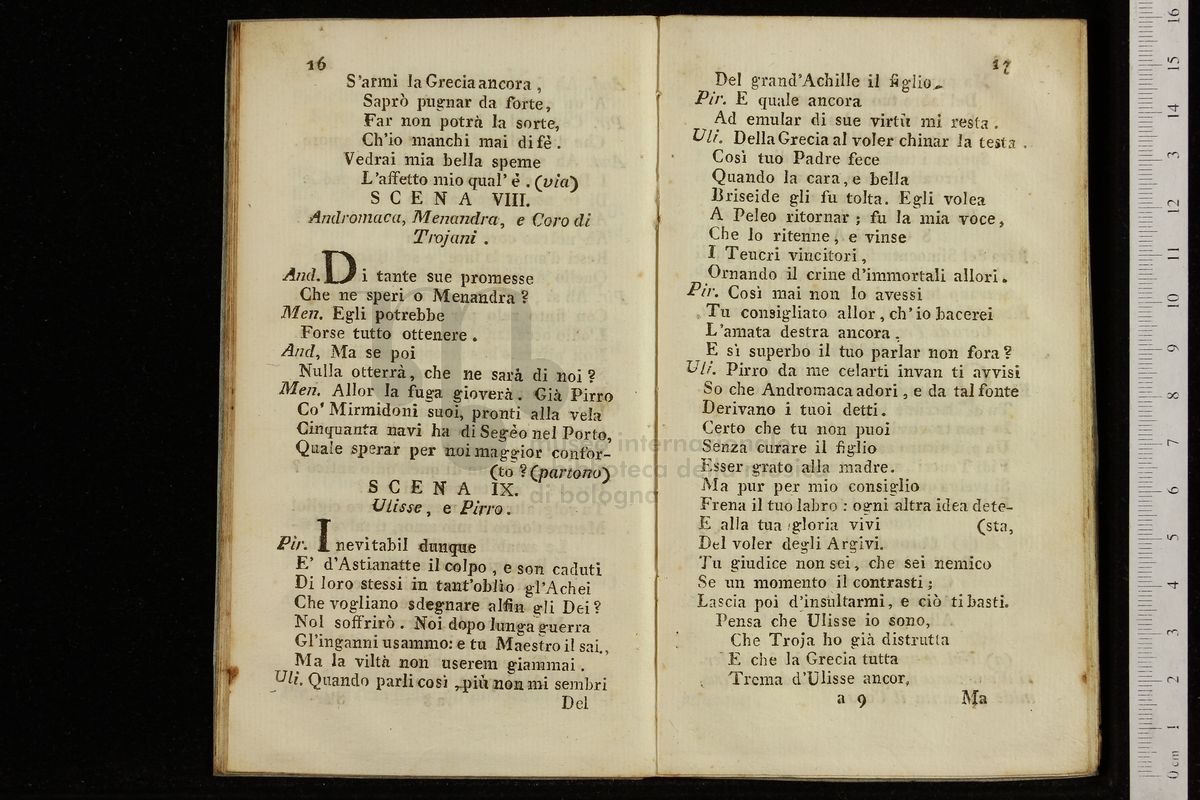 16
S'armi la Grecia ancora ,
Saprò pugnar da forte,
Far non potrà la sorte,
Ch'io manchi mai di fè .
Vedrai mia bella speme
L'affetto mio qual' è . (via)
SCENA VIII.
Andromaca, Menandra, e Coro di
Trojani .
And. Di tante sue promesse
Che ne speri o Menandra ?
Men. Egli potrebbe
Forse tutto ottenere .
And, Ma se poi
Nulla otterrà, che ne sarà di noi ?
Men. Allor la fuga gioverà. Già Pirro
Co' Mirmidoni suoi, pronti alla vela
Cinquanta navi ha di Segèo nel Porto,
Quale sperar per noi maggior confor-
(to ? (partono)
SCENA IX.
Ulisse, e Pirro.
Pir. Inevitabil dunque
E' d'Astianatte il colpo , e son caduti
Di loro stessi in tant'oblio gl'Achei
Che vogliano sdegnare alfin gli Dei ?
Nol soffrirò . Noi dopo lunga guerra
Gl'inganni usammo: e tu Maestro il sai,
Ma la viltà non userem giammai .
Uli. Quando parli così , più non mi sembri
Del
17
Del grand'Achille il figlio.
Pir. E quale ancora
Ad emular di sue virtù mi resta .
Uli. Della Grecia al voler chinar la testa .
Così tuo Padre fece
Quando la cara, e bella
Briseide gli fu tolta. Egli volea
A Peleo ritornar ; fu la mia voce,
Che lo ritenne, e vinse
I Teucri vincitori ,
Ornando il crine d'immortali allori.
Pir. Così mai non lo avessi
Tu consigliato allor , ch' io bacerei
L'amata destra ancora .
E sì superbo il tuo parlar non fora ?
Uli. Pirro da me celarti invan ti avvisi
So che Andromaca adori , e da tal fonte
Derivano i tuoi detti.
Certo che tu non puoi
Senza curare il figlio
Esser grato alla madre.
Ma pur per mio consiglio
Frena il tuo labro : ogni altra idea dete-
E alla tua gloria vivi (sta,
Del voler degli Argivi.
Tu giudice non sei, che sei nemico
Se un momento il contrasti ;
Lascia poi d'insultarmi, e ciò ti basti.
Pensa che Ulisse io sono,
Che Troja ho già distrutta
E che la Grecia tutta
Trema d'Ulisse ancor,
a 9 Ma
museo internazionale
e biblioteca della musica
di bologna
0 cm 1 2 3 4 5 6 7 8 9 10 11 12 13 14 15 16